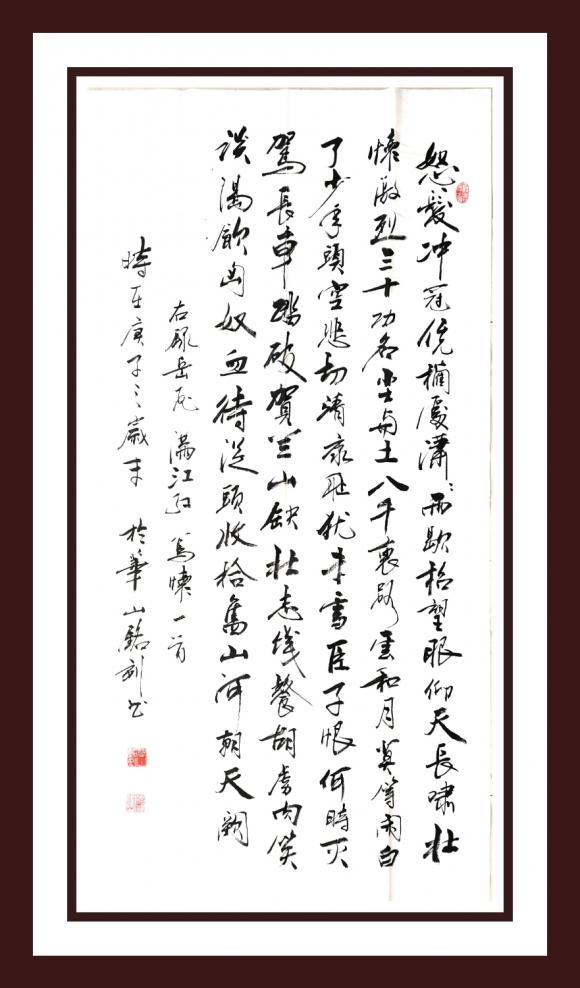 怒髮冲冠凭欄處瀟瀟雨歇抬望眼仰天長嘯壯
懷激烈三十功名塵與土八千裏路雲和月莫等閑白
了少年頭空悲切靖康恥犹未雪臣子恨何時灭
駕長車踏破賀兰山缺壯志饑餐胡虏肉笑
谈渴飲匈奴血待從頭收拾舊山河朝天闕
右録岳飛滿江红寫懷一首
時在庚子之歲末於華山